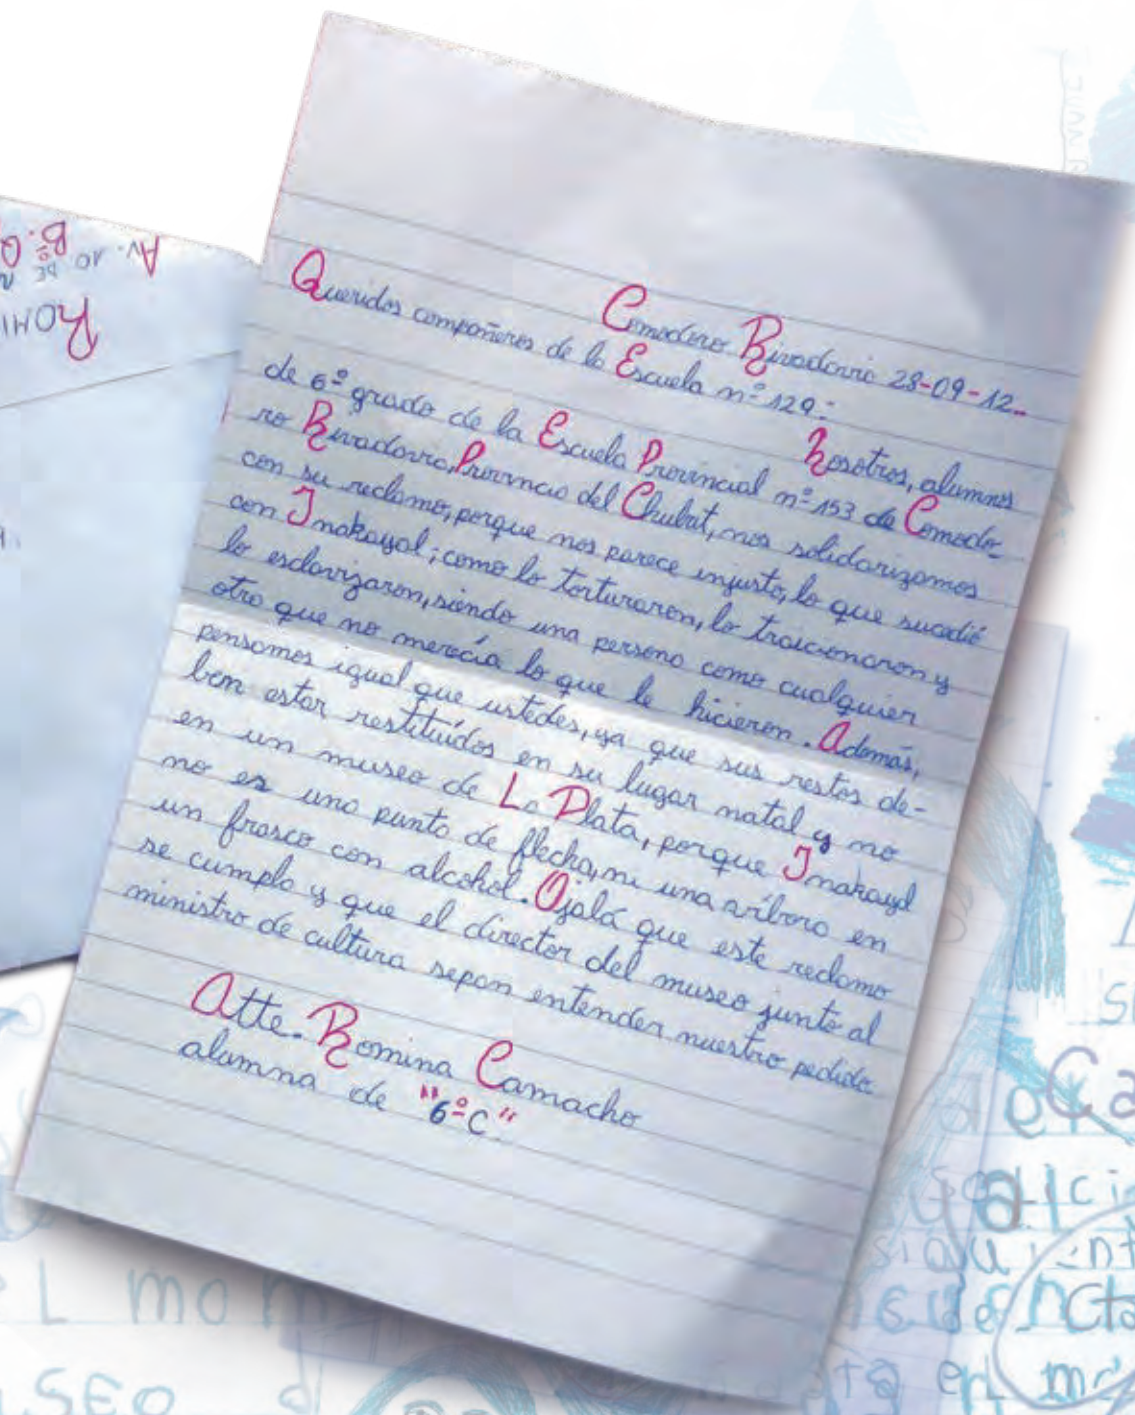 Comodoro Rivadavia 28-09-12.
Queridos compañeros de la Escuela nº 129:
Nosotros, alumnos
de 6º grado de la Escuela Provincial nº 153 de Comodo-
ro Rivadavia, Provincia del Chubut, nos solidarizamos
con su reclamo, porque nos parece injusto, lo que sucedió
con Inakayal; como lo torturaron, lo traicionaron y
lo esclavizaron, siendo una persona como cualquier
otra que no merecía lo que le hicieron. Además,
pensamos igual que ustedes, ya que sus restos de-
ben estar restituídos en su lugar natal y no
en un museo de La Plata, porque Inakayal
no es una punta de flecha, ni una víbora en
un frasco con alcohol. Ojalá que este reclamo
se cumpla y que el director del museo junto al
ministro de cultura sepan entender nuestro pedido.
Atte. Romina Camacho
alumna de "6º C"
Av.
10 DE
ROMI
EL mom
SEO
Ca
en